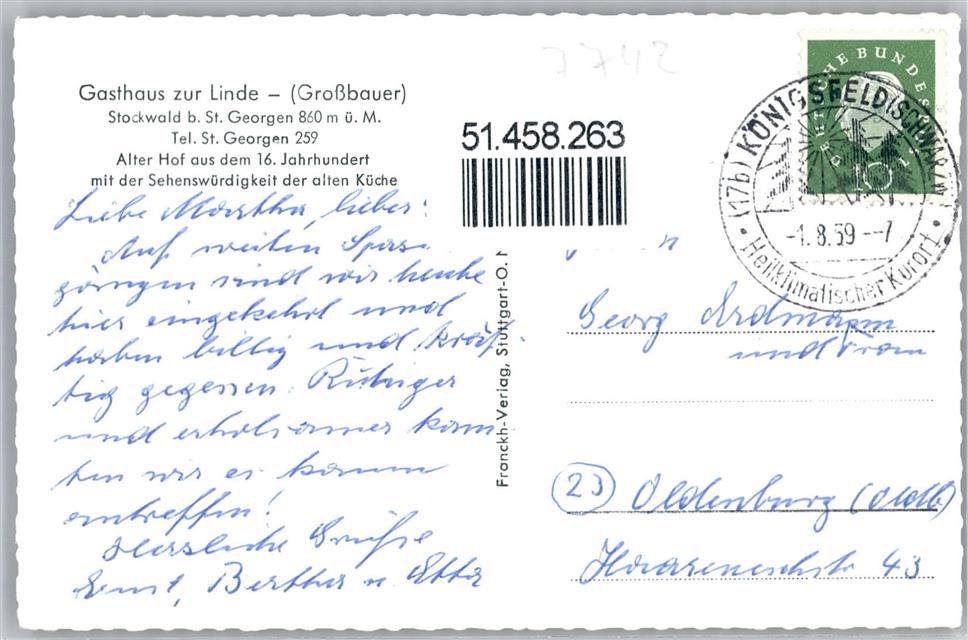 7742
Gasthaus zur Linde – (Großbauer)
Stockwald b. St. Georgen 860 m ü. M.
Tel. St. Georgen 259
Alter Hof aus dem 16. Jahrhundert
mit der Sehenswürdigkeit der alten Küche
51.458.263
DEUTSCHE BUNDESPOST
10
(17b) KÖNIGSFELD (SCHWARZW)
-1.8.59--7
Heilklimatischer Kurort
Liebe Martha, lieber
Auf weiten Spazier-
gängen sind wir heute
hier eingekehrt und
haben billig und kräf-
tig gegessen. Ruhiger
und erholsamer könn-
ten wir es kaum
antreffen!
Herzliche Grüße
Ernst, Bertha u. Etta
Franckh-Verlag, Stuttgart-O.
Georg Erdmann
und Frau
(23) Oldenburg (Oldb)
Haareneschstr 43